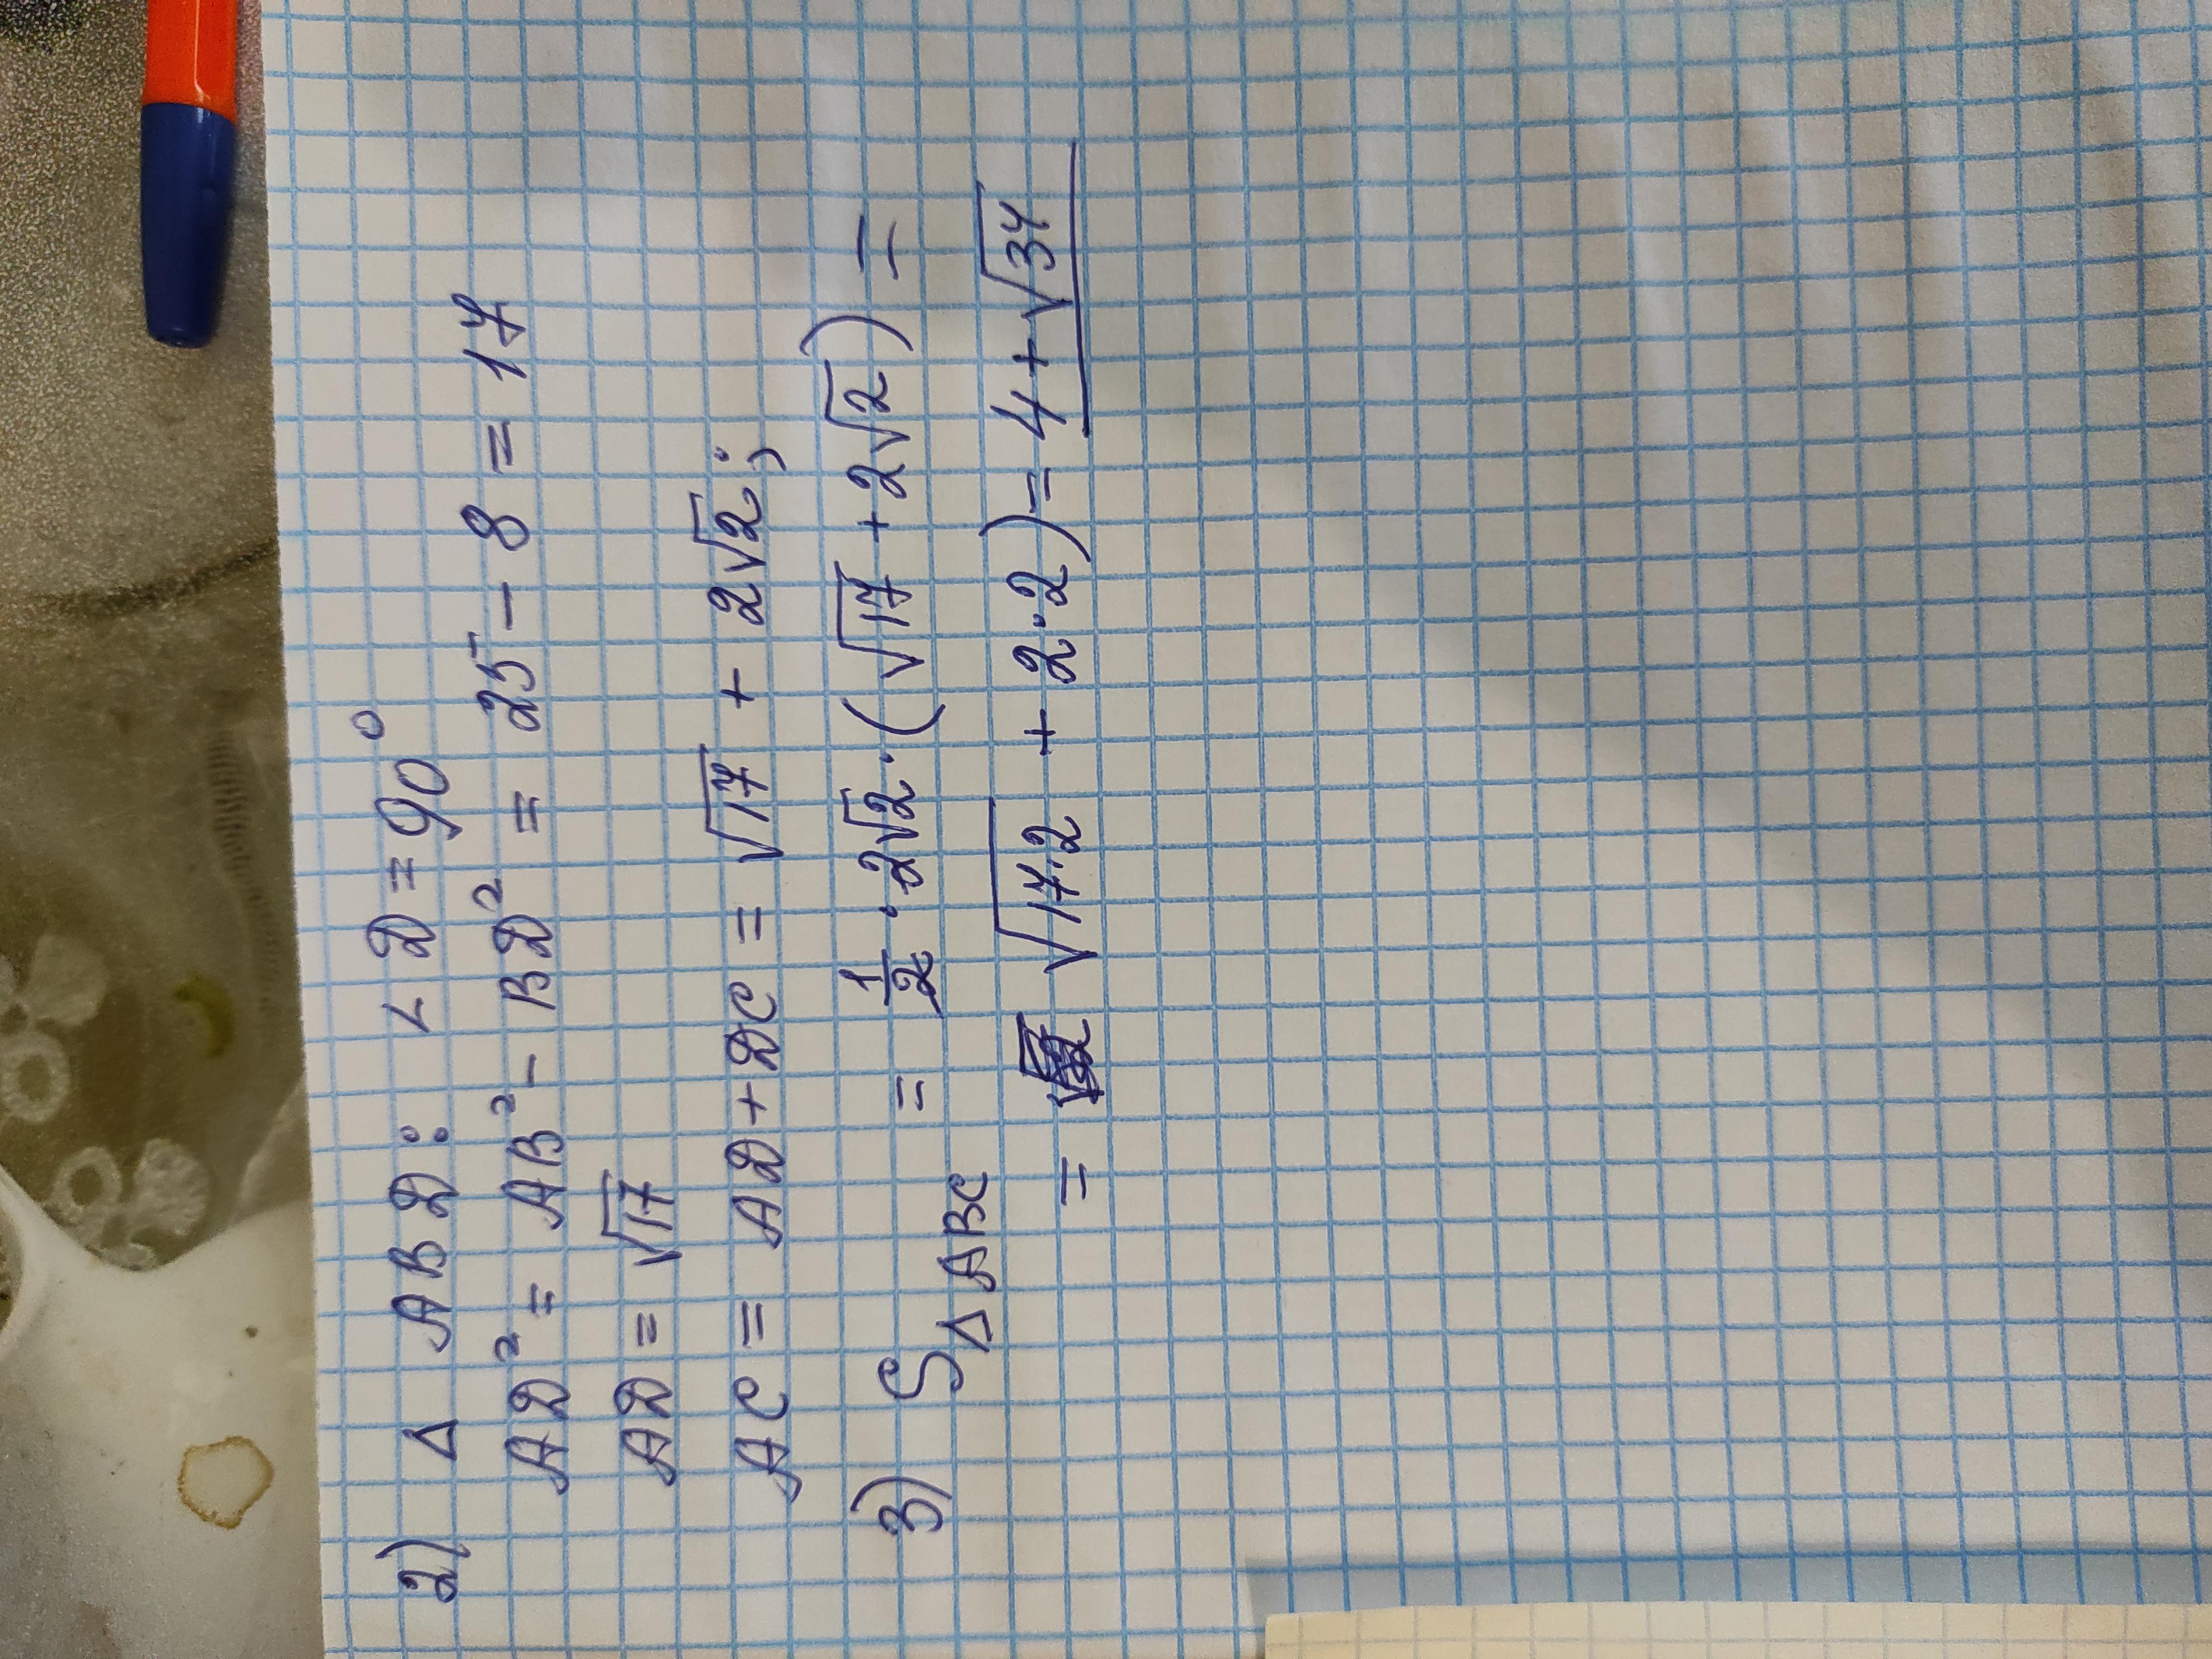 2) Δ ABD: ∠ D = 90°
AD² = AB² - BD² = 25 - 8 = 17
AD = √17
AC = AD + DC = √17 + 2√2;
3) S Δ ABC = 1/2 · 2√2 · (√17 + 2√2) =
= √17·2 + 2·2) = 4 + √34